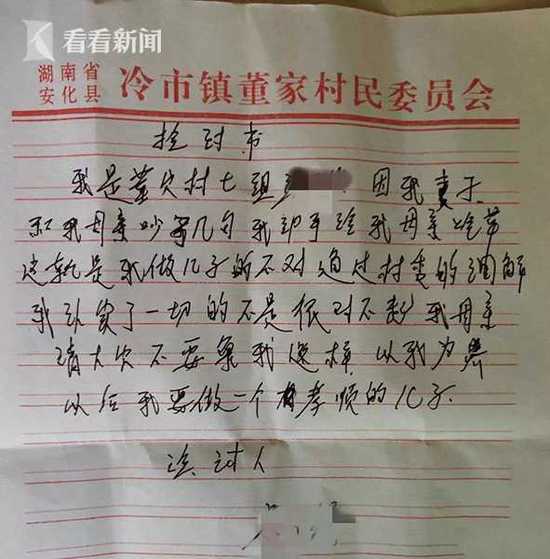 看看新闻
湖南省
安化县
冷市镇董家村民委员会
捡讨书
我是董家村七组 因我妻子
和我母亲吵了几句 我动手给我母亲
这就是我做儿子的不对 通过村委的调解
我认识了一切的不是 很对不起 我母亲
请大家不要象我这样 以我为界
以后我要做一个有孝顺的儿子.
讨人